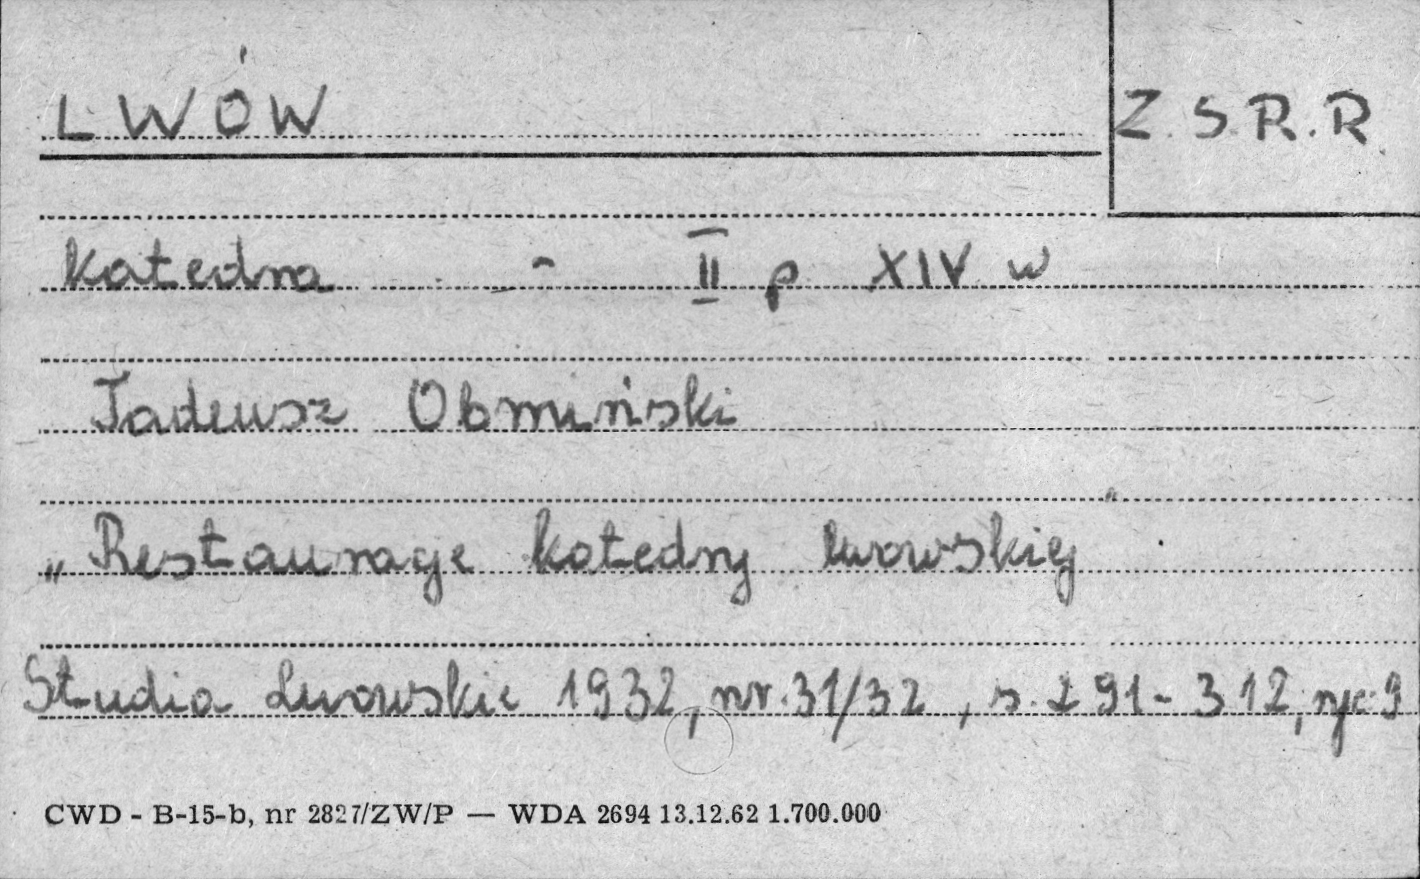 LWÓW
Z.S.R.R
Katedra - II p XIV w
Tadeusz Obmiński
„Restauracje katedry lwowskiej"
Studia Lwowskie 1932, nr. 31/32, s. 291-312, ryc 9
CWD - B-15-b, nr 2827/ZW/P — WDA 2694 13.12.62 1.700.000